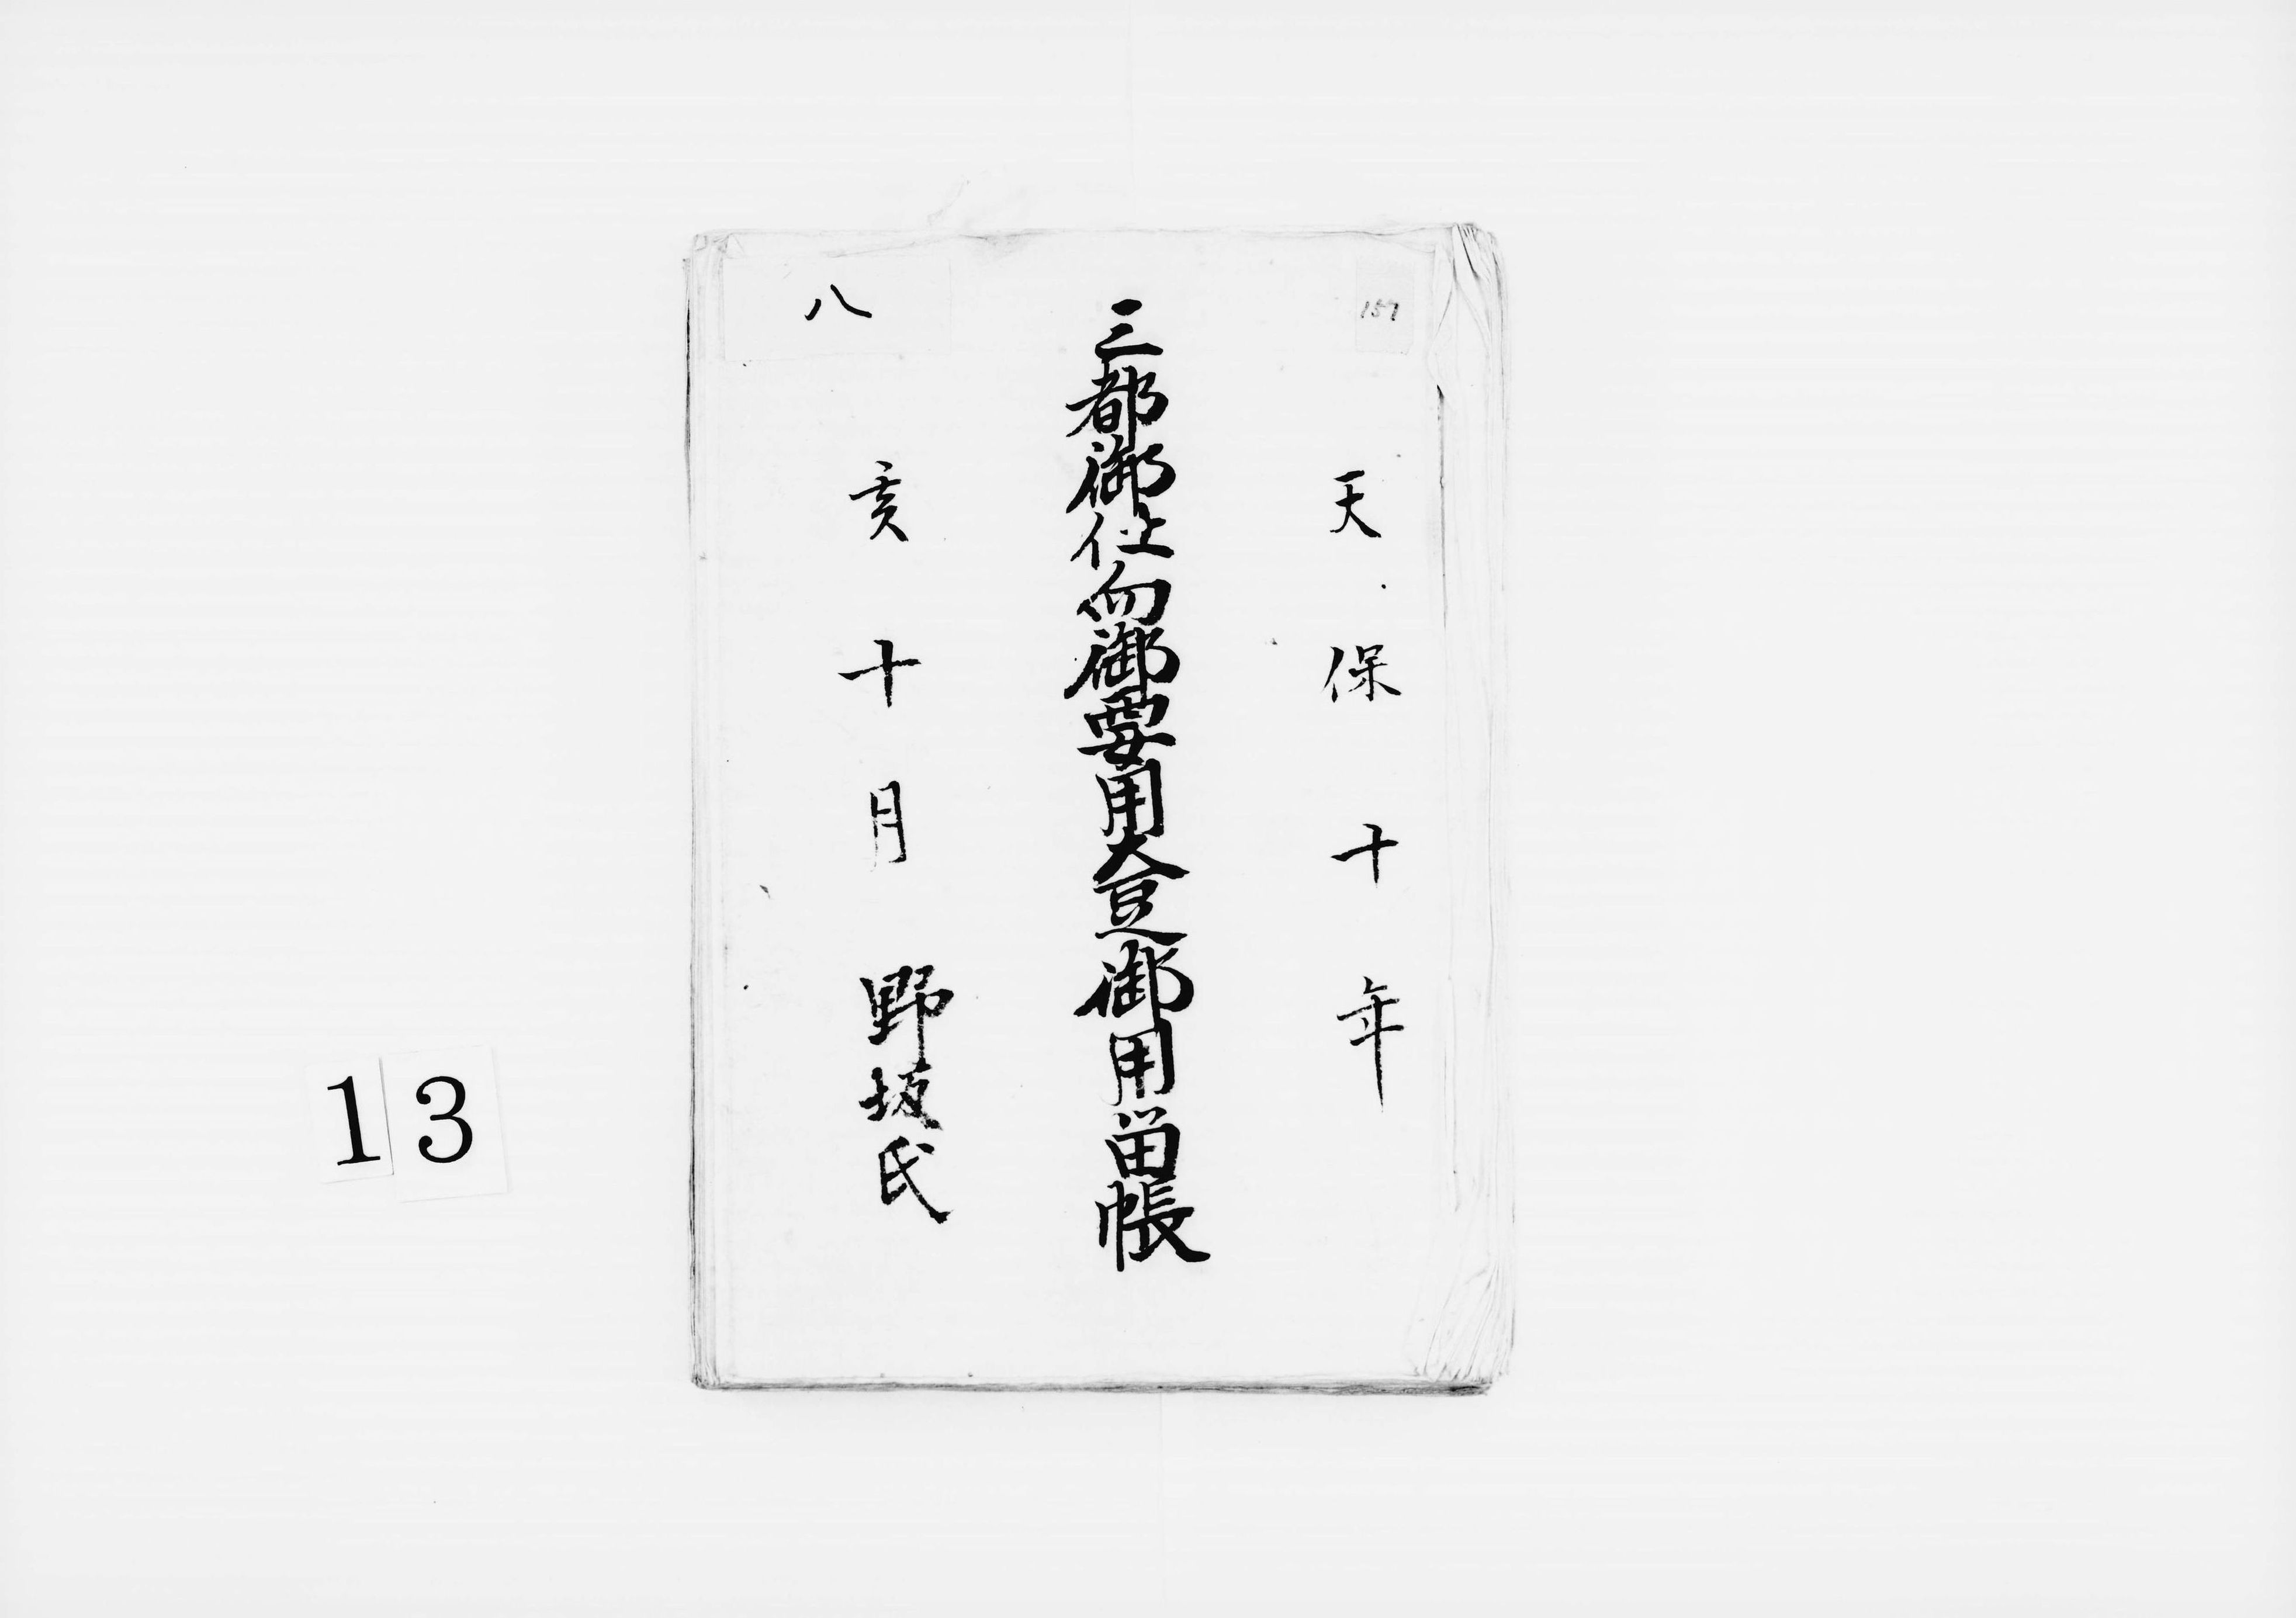 157
天保十年
三都御仕向御要用大豆御用留帳
八
亥十月 野坂氏
13